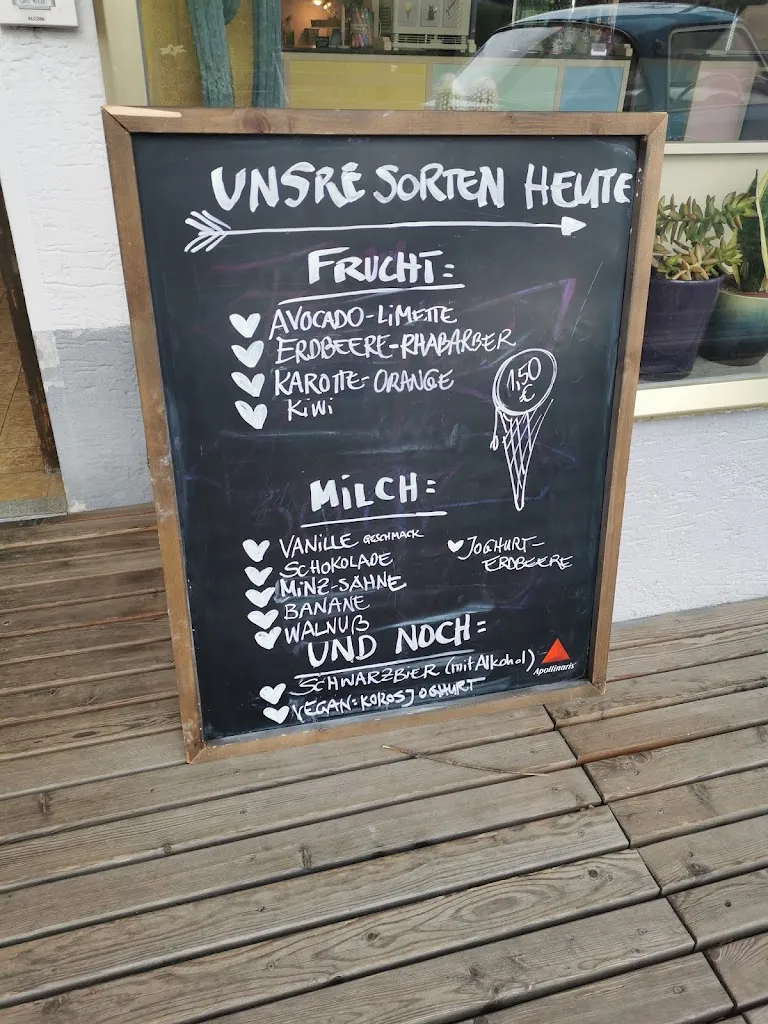 UNSRE SORTEN HEUTE
FRUCHT:
AVOCADO-LIMETTE
ERDBEERE-RHABARBER
KAROTTE-ORANGE
KIWI
1,50
€
MILCH:
VANILLE GESCHMACK
SCHOKOLADE
MINZ-SAHNE
BANANE
WALNUß
JOGHURT-
ERDBEERE
UND NOCH:
SCHWARZBIER (mit Alkohol)
VEGAN: KOKOSJOGHURT
Apollinaris